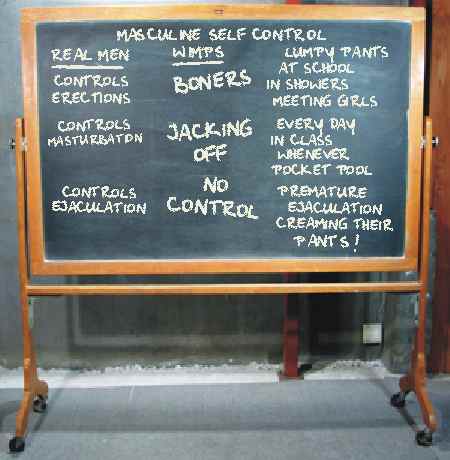 MASCULINE SELF CONTROL
REAL MEN
WIMPS
CONTROLS
ERECTIONS
BONERS
LUMPY PANTS
AT SCHOOL
IN SHOWERS
MEETING GIRLS
CONTROLS
MASTURBATON
JACKING
OFF
EVERY DAY
IN CLASS
WHENEVER
POCKET POOL
CONTROLS
EJACULATION
NO
CONTROL
PREMATURE
EJACULATION
CREAMING THEIR
PANTS!